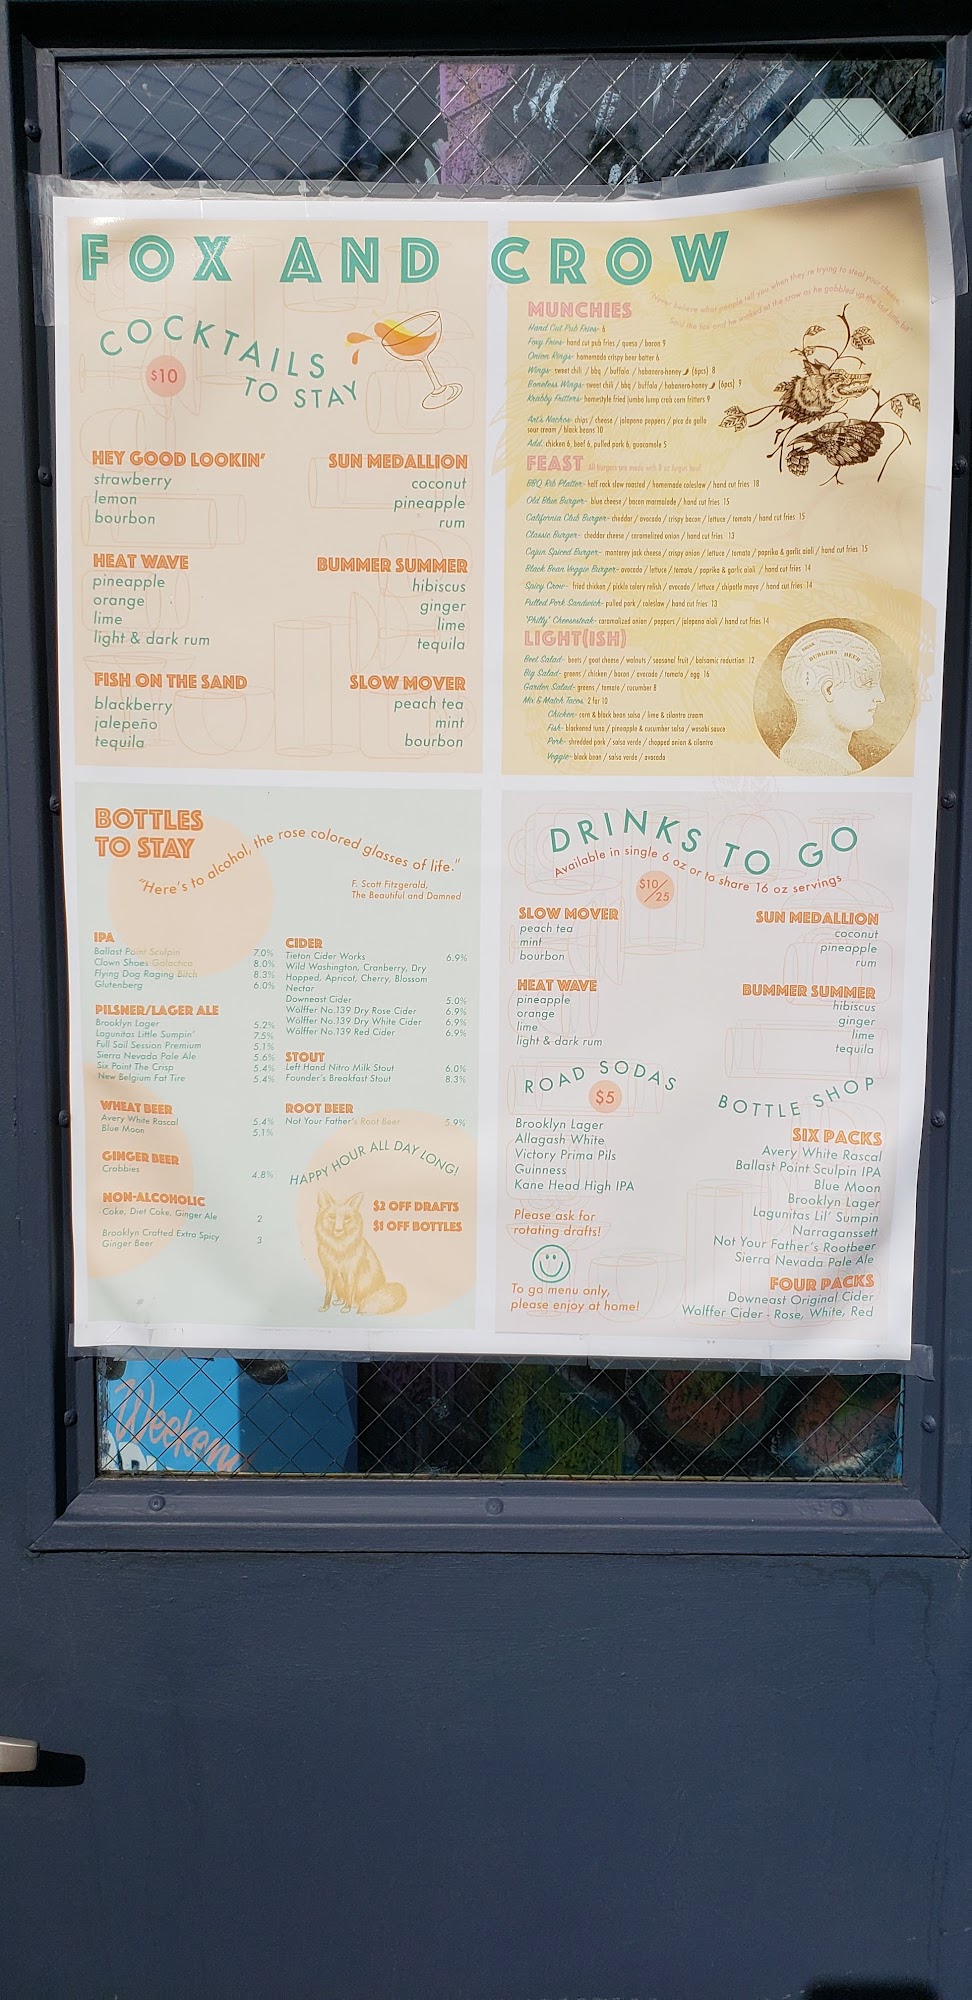 FOX AND CROW
COCKTAILS
TO STAY
$10
HEY GOOD LOOKIN'
strawberry
lemon
bourbon
SUN MEDALLION
coconut
pineapple
rum
HEAT WAVE
pineapple
orange
lime
light & dark rum
BUMMER SUMMER
hibiscus
ginger
lime
tequila
FISH ON THE SAND
blackberry
jalepeño
tequila
SLOW MOVER
peach tea
mint
bourbon
MUNCHIES
"Never believe what people tell you when they're trying to steal your cheese,
Said the fox and he winked at the crow as he gobbled up the last little bit"
Hand Cut Pub Fries- 6
Foxy Fries- hand cut pub fries / queso / bacon 9
Onion Rings- homemade crispy beer batter 6
Wings- sweet chili / bbq / buffalo / habanero-honey (6pcs) 8
Boneless Wings- sweet chili / bbq / buffalo / habanero-honey (6pcs) 9
Krabby Fritters- homestyle fried jumbo lump crab corn fritters 9
Art's Nachos- chips / cheese / jalapeno peppers / pico de gallo
sour cream / black beans 10
Add: chicken 6, beef 6, pulled pork 6, guacamole 5
FEAST All burgers are made with 8 oz Angus beef
BBQ Rib Platter- half rack slow roasted / homemade coleslaw / hand cut fries 18
Old Blue Burger- blue cheese / bacon marmalade / hand cut fries 15
California Club Burger- cheddar / avocado / crispy bacon / lettuce / tomato / hand cut fries 15
Classic Burger- cheddar cheese / caramelized onion / hand cut fries 13
Cajun Spiced Burger- monterey jack cheese / crispy onion / lettuce / tomato / paprika & garlic aioli / hand cut fries 15
Black Bean Veggie Burger- avocado / lettuce / tomato / paprika & garlic aioli / hand cut fries 14
Spicy Crow- fried chicken / pickle celery relish / avocado / lettuce / chipotle mayo / hand cut fries 14
Pulled Pork Sandwich- pulled pork / coleslaw / hand cut fries 13
"Philly" Cheesesteak- caramalized onion / peppers / jalapeno aioli / hand cut fries 14
LIGHT(ISH)
Beet Salad- beets / goat cheese / walnuts / seasonal fruit / balsamic reduction 12
Big Salad- greens / chicken / bacon / avocado / tomato / egg 16
Garden Salad- greens / tomato / cucumber 8
Mix & Match Tacos 2 for 10
Chicken- corn & black bean salsa / lime & cilantro cream
Fish- blackened tuna / pineapple & cucumber salsa / wasabi sauce
Pork- shredded pork / salsa verde / chopped onion & cilantro
Veggie- black bean / salsa verde / avocado
BURGERS BEER
BOTTLES
TO STAY
"Here's to alcohol, the rose colored glasses of life."
F. Scott Fitzgerald,
The Beautiful and Damned
IPA
Ballast Point Sculpin 7.0%
Clown Shoes Galactica 8.0%
Flying Dog Raging Bitch 8.3%
Glutenberg 6.0%
PILSNER/LAGER ALE
Brooklyn Lager 5.2%
Lagunitas Little Sumpin' 7.5%
Full Sail Session Premium 5.1%
Sierra Nevada Pale Ale 5.6%
Six Point The Crisp 5.4%
New Belgium Fat Tire 5.4%
WHEAT BEER
Avery White Rascal 5.4%
Blue Moon 5.1%
GINGER BEER
Crabbies 4.8%
NON-ALCOHOLIC
Coke, Diet Coke, Ginger Ale 2
Brooklyn Crafted Extra Spicy 3
Ginger Beer
CIDER
Tieton Cider Works 6.9%
Wild Washington, Cranberry, Dry
Hopped, Apricot, Cherry, Blossom
Nectar
Downeast Cider 5.0%
Wölffer No.139 Dry Rose Cider 6.9%
Wölffer No.139 Dry White Cider 6.9%
Wölffer No.139 Red Cider 6.9%
STOUT
Left Hand Nitro Milk Stout 6.0%
Founder's Breakfast Stout 8.3%
ROOT BEER
Not Your Father's Root Beer 5.9%
HAPPY HOUR ALL DAY LONG!
$2 OFF DRAFTS
$1 OFF BOTTLES
DRINKS TO GO
Available in single 6 oz or to share 16 oz servings
$10/25
SLOW MOVER
peach tea
mint
bourbon
SUN MEDALLION
coconut
pineapple
rum
HEAT WAVE
pineapple
orange
lime
light & dark rum
BUMMER SUMMER
hibiscus
ginger
lime
tequila
ROAD SODAS
$5
Brooklyn Lager
Allagash White
Victory Prima Pils
Guinness
Kane Head High IPA
Please ask for
rotating drafts!
To go menu only,
please enjoy at home!
BOTTLE SHOP
SIX PACKS
Avery White Rascal
Ballast Point Sculpin IPA
Blue Moon
Brooklyn Lager
Lagunitas Lil' Sumpin
Narraganssett
Not Your Father's Rootbeer
Sierra Nevada Pale Ale
FOUR PACKS
Downeast Original Cider
Wolffer Cider - Rose, White, Red
Weeken